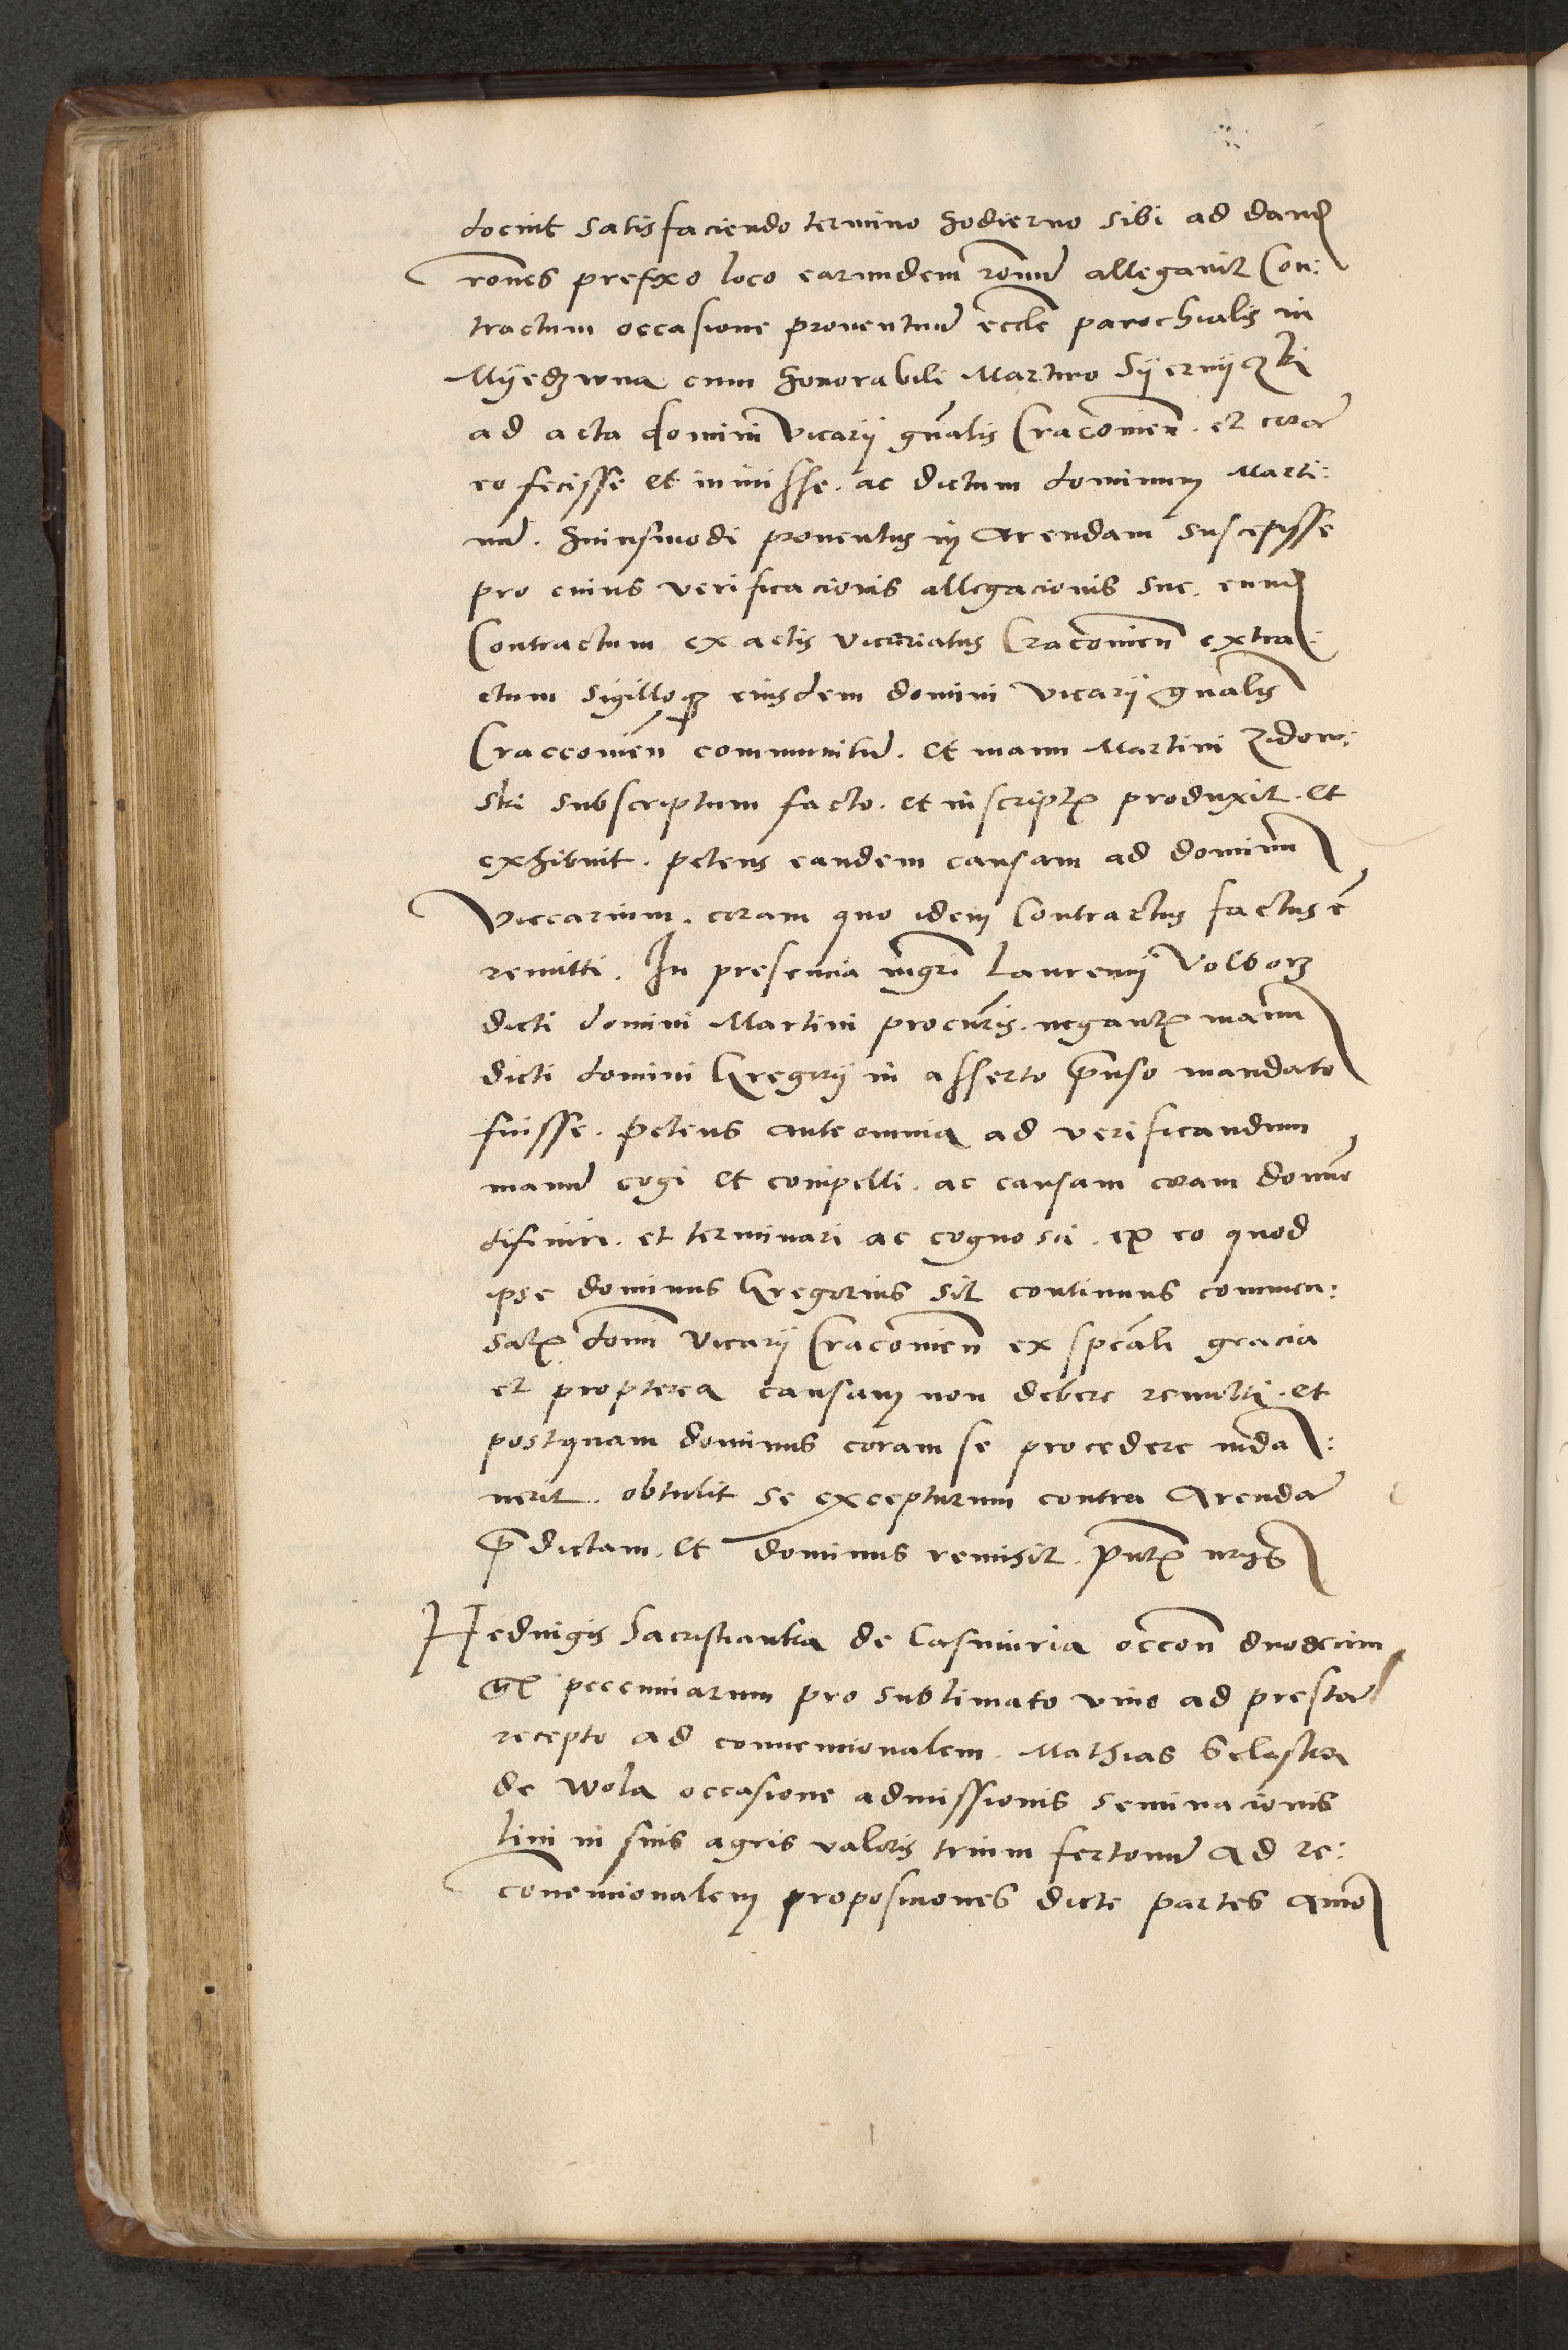 docuit satisfaciendo termino hodierno sibi ad dand
rones prefixo loco earumdem ronum allegavit Con:
tractum occasione proventuum eccle parochialis in
cum honorabili Martino
ad acta domini vicarij gnalis Cracovien. et coram
eo fecisse et inivisse. ac dictum dominum Marti:
num. huiusmodi proventus in Arendam suscepisse
pro cuius verificacionis allegacionis sue. eund
Contractum ex actis vicariatus Cracovien extra:
ctum sigilloq eiusdem domini vicarij gnalis
Craccovien communitum. et manu Martini Zidow:
ski subscriptum facto. et in scriptis produxit. et
exhibuit. petens eandem causam ad dominum
Viccarium. coram quo idem Contractus factus e
remitti. In presencia mgri Laurencij Wolborz
dicti domini Martini procuris. negantis manum
dicti domini Gregorij in asserto penso mandato
fuisse. petens ante omnia ad verificandum
manum cogi et compelli. ac causam coram domino
difiniri. et terminari ac cognosci. ex eo quod
ipse dominus Gregorius sit continuus commen:
salis domini vicarij Cracovien ex speciali gracia
et propterea causam non debere remitti. et
postquam dominus coram se procedere manda:
verit. obtulit se excepturum contra Arendam
predictam. et dominus remisit. pntibus
Hedvigis Sacristianka de Casimiria occon duodecim
gr peccuniarum pro sublimato vino ad prestam
recepto ad convencionalem. Mathias
de Wola occasione admissionis seminacionis
lini in suis agris valoris trium fertonum ad re:
convencionalem proposiciones dicte partes amo